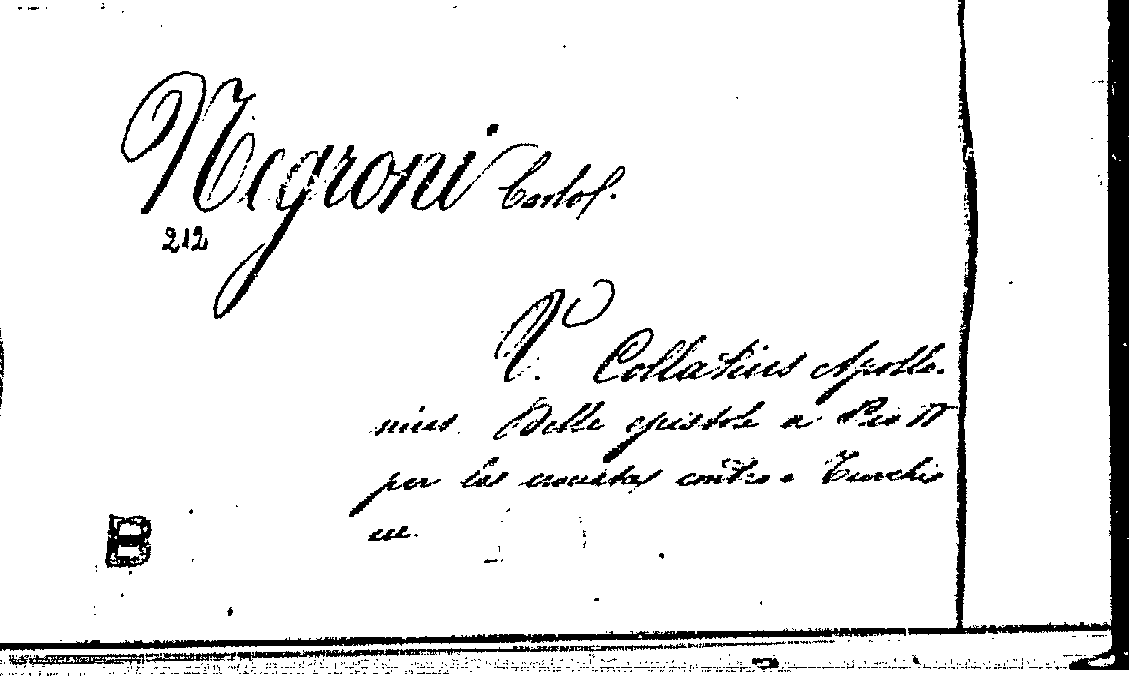 Negroni Bartol.
212
V.° Collatius Apollo-
nius. Delle epistole a Pio II
per la crociata contro i Turchi
ecc.
B